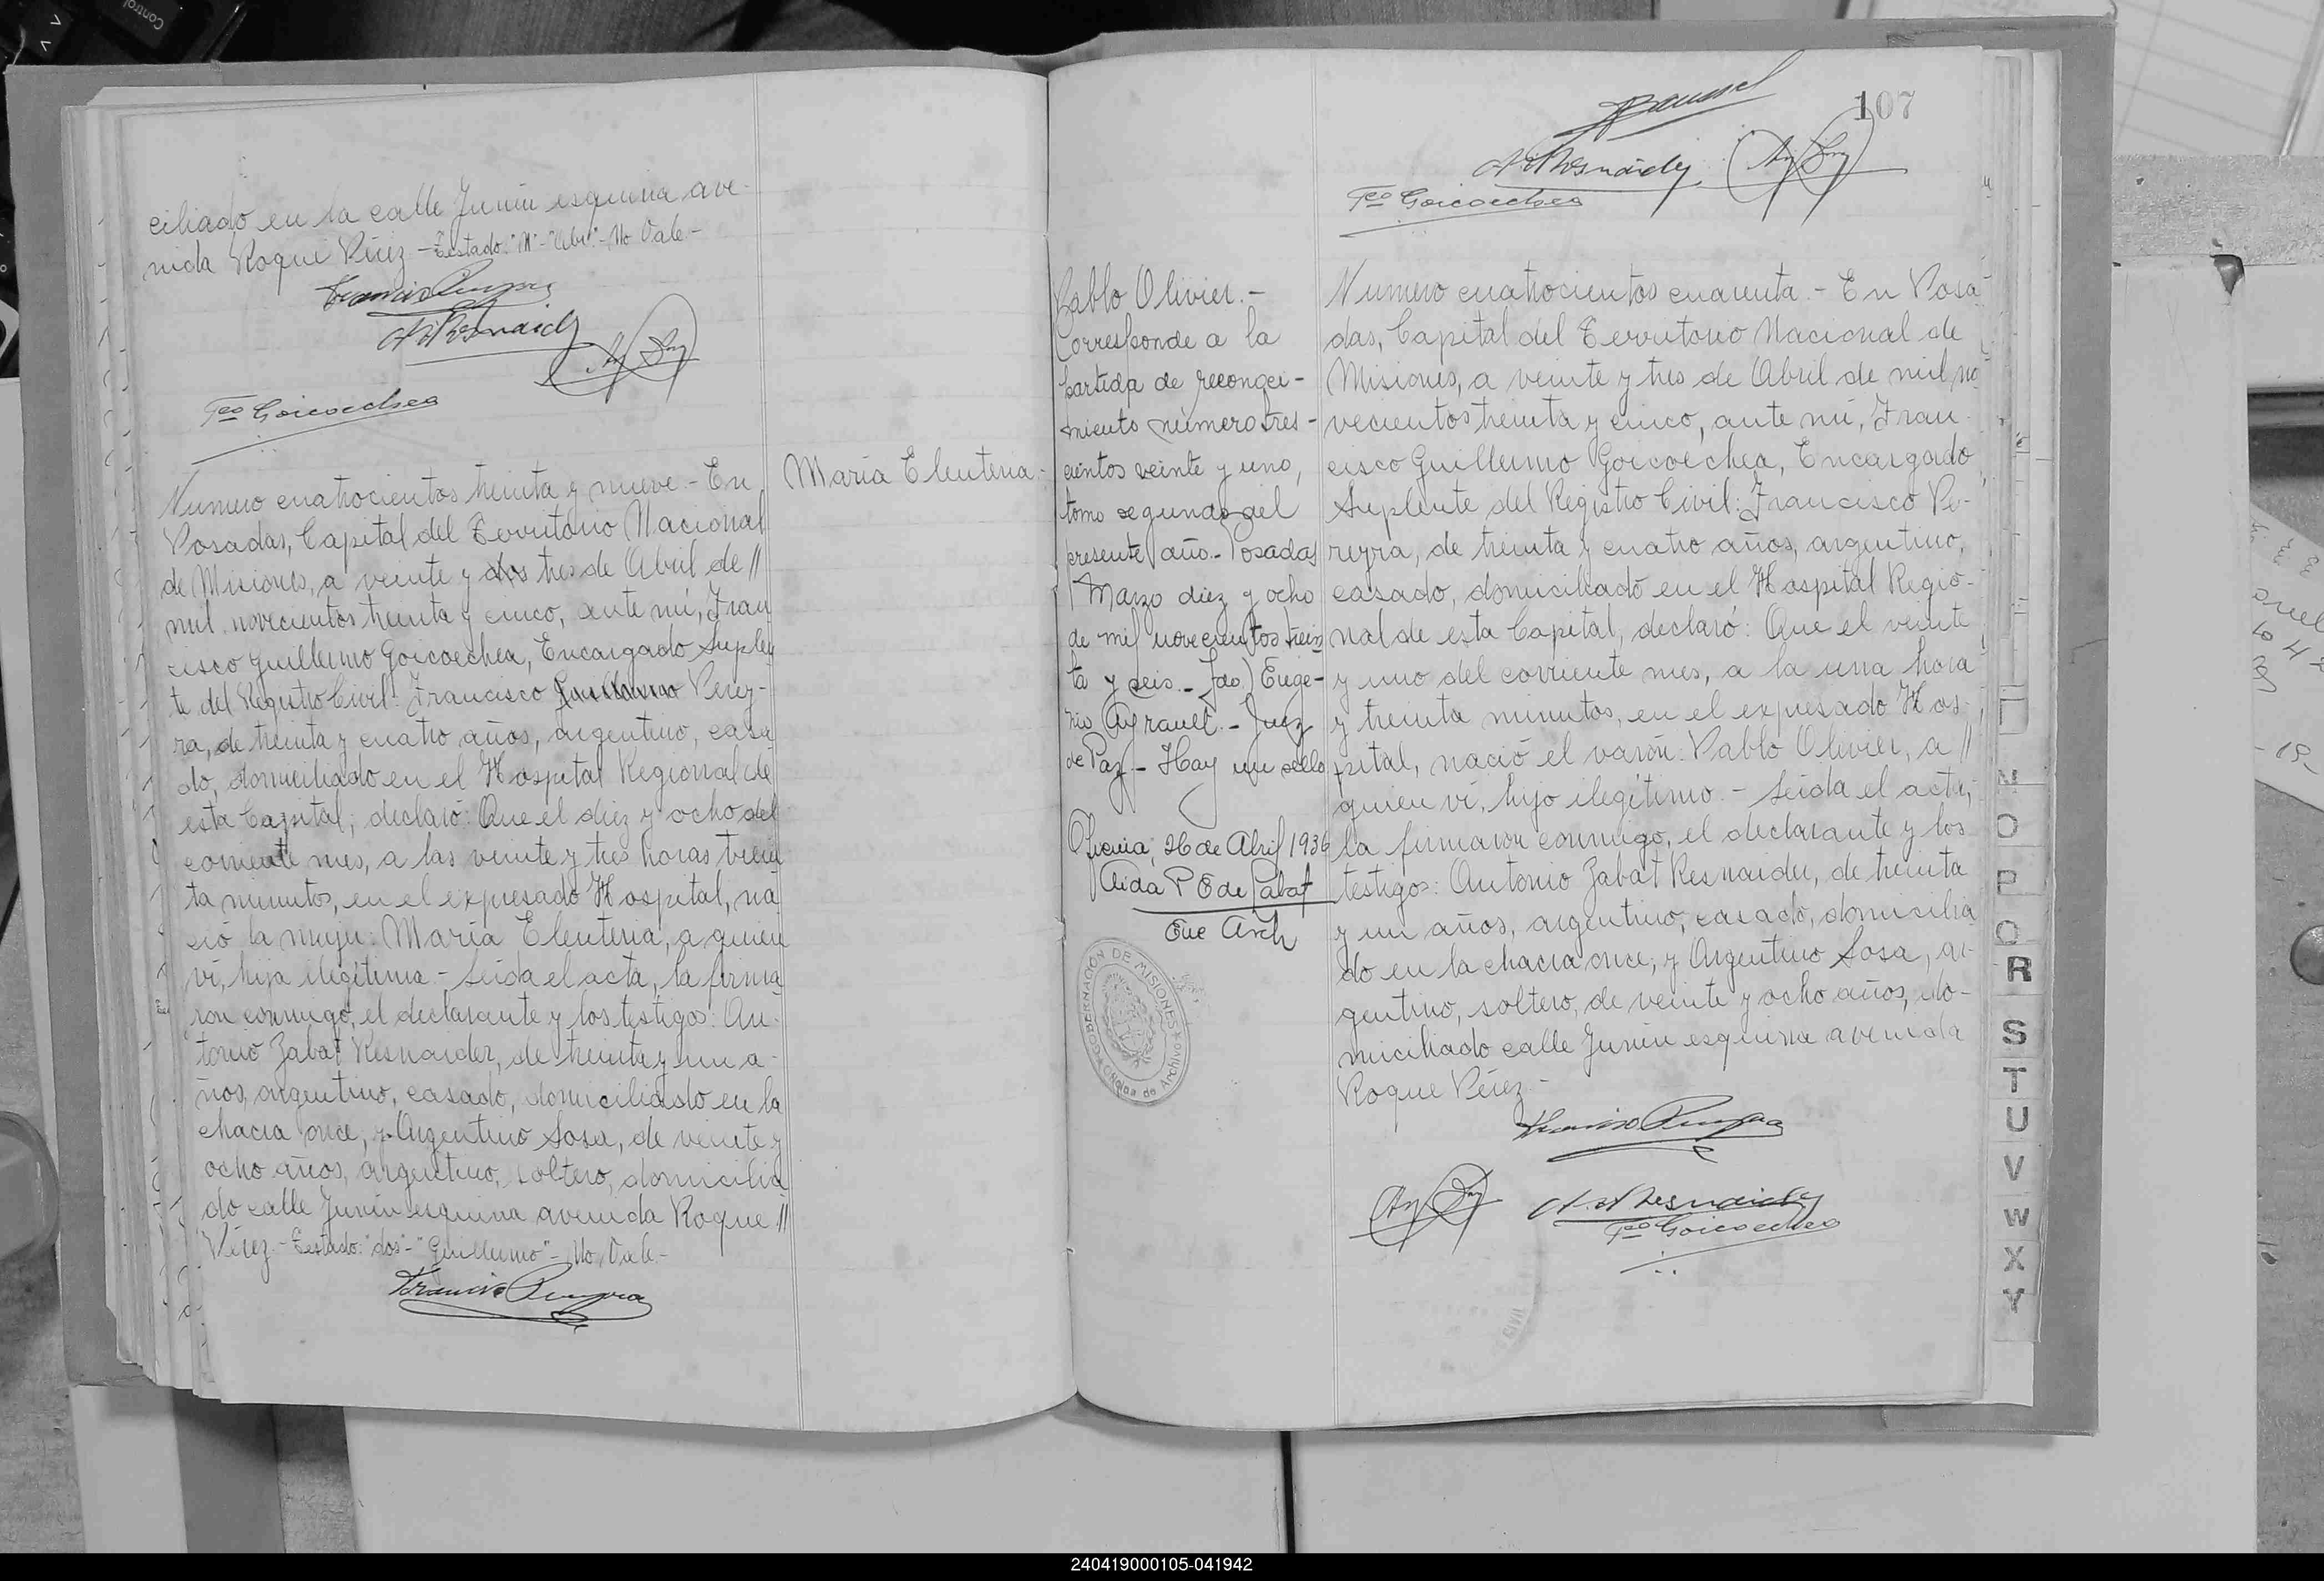 ciliado en la calle Junín esquina ave-
nida Roque Pérez - Testado: "M" - "Abr" - No Vale -
Fco Goicoechea
Maria Eleuteria -
Numero cuatrocientos treinta y nueve - En
Posadas, Capital del Territorio Nacional
de Misiones, a veinte y dos tres de Abril de //
mil novecientos treinta y cinco, ante mí, Fran
cisco Guillermo Goicoechea, Encargado Suplen
te del Registro Civil: Francisco Guillermo Perey-
ra, de treinta y cuatro años, argentino, casa
do, domiciliado en el Hospital Regional de
esta Capital; declaró: Que el diez y ocho del
corriente mes, a las veinte y tres horas trein
ta minutos, en el expresado Hospital, na
ció la mujer: María Eleuteria, a quien
ví, hija ilegítima - Leída el acta, la firma
ron conmigo, el declarante y los testigos: An-
tonio Zabat Resnaider, de treinta y un a-
ños, argentino, casado, domiciliado en la
chacra once; y Argentino Sosa, de veinte y
ocho años, argentino, soltero, domicilia
do calle Junín esquina avenida Roque //
Pérez - Testado: "dos" - "Guillermo" - No Vale -
107
Fco Goicoechea
Pablo Olivier. -
Corresponde a la
partida de reconoci-
miento número tres-
cientos veinte y uno,
tomo segundo del
presente año. - Posadas
Marzo diez y ocho
de mil novecientos trein
ta y seis. - Fdo) Euge-
nio Ayrault. - Juez
de Paz - Hay un sello
Oficina, 26 de Abril 1936
Aida P O de Zabat
Enc Arch
GOBERNACIÓN DE MISIONES
Oficina de Archivo
Numero cuatrocientos cuarenta. - En Posa
das, Capital del Territorio Nacional de
Misiones, a veinte y tres de Abril de mil no
vecientos treinta y cinco, ante mí, Fran-
cisco Guillermo Goicoechea, Encargado
Suplente del Registro Civil: Francisco Pe-
reyra, de treinta y cuatro años, argentino,
casado, domiciliado en el Hospital Regio-
nal de esta Capital, declaró: Que el veinte
y uno del corriente mes, a la una hora
y treinta minutos, en el expresado Hos-
pital, nació el varón: Pablo Olivier, a //
quien ví, hijo ilegítimo. - Leída el acta,
la firmaron conmigo, el declarante y los
testigos: Antonio Zabat Resnaider, de treinta
y un años, argentino, casado, domicilia
do en la chacra once; y Argentino Sosa, ar-
gentino, soltero, de veinte y ocho años, do-
miciliado calle Junín esquina avenida
Roque Pérez -
Fco Goicoechea
N
O
P
Q
R
S
T
U
V
W
X
Y
Control
240419000105-041942